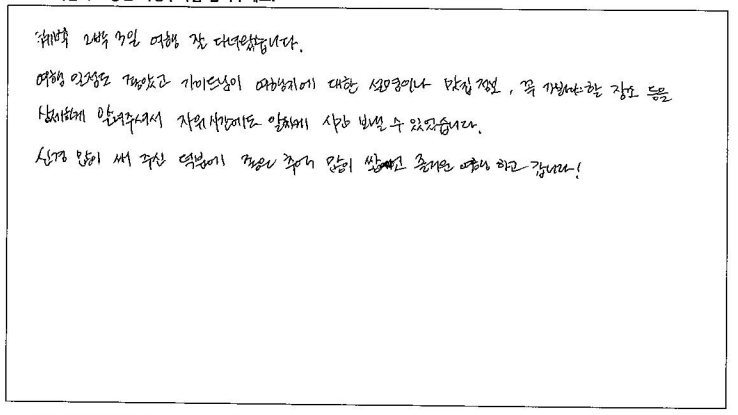 2박 3일 여행 잘 다녀왔습니다.
여행 일정도 좋았고 가이드님이 여행지에 대한 설명이나 맛집 정보, 꼭 가봐야할 장소 등을
상세하게 알려주셔서 자유시간에도 알차게 시간 보낼 수 있었습니다.
신경 많이 써 주신 덕분에 좋은 추억 많이 쌓고 즐거운 여행 하고 갑니다!